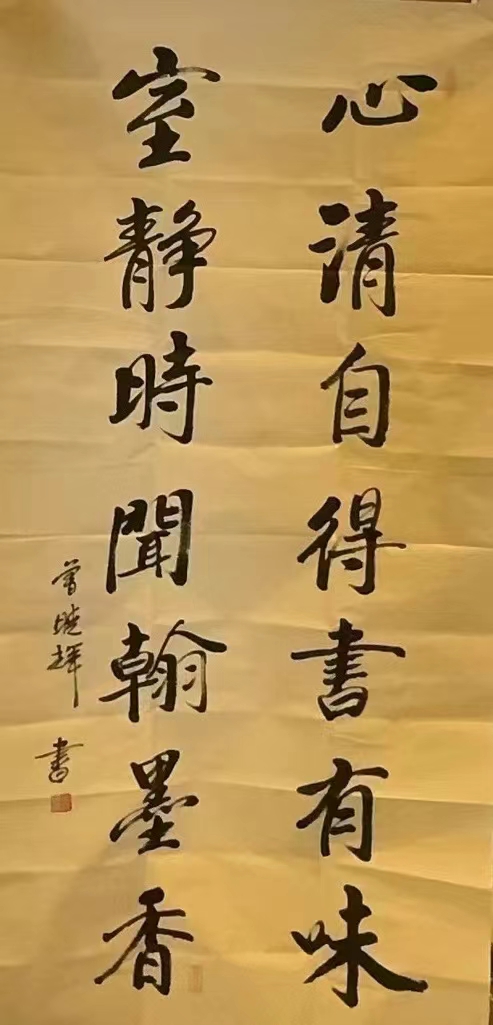 心清自得書有味
室靜時聞翰墨香
曾曉輝 書